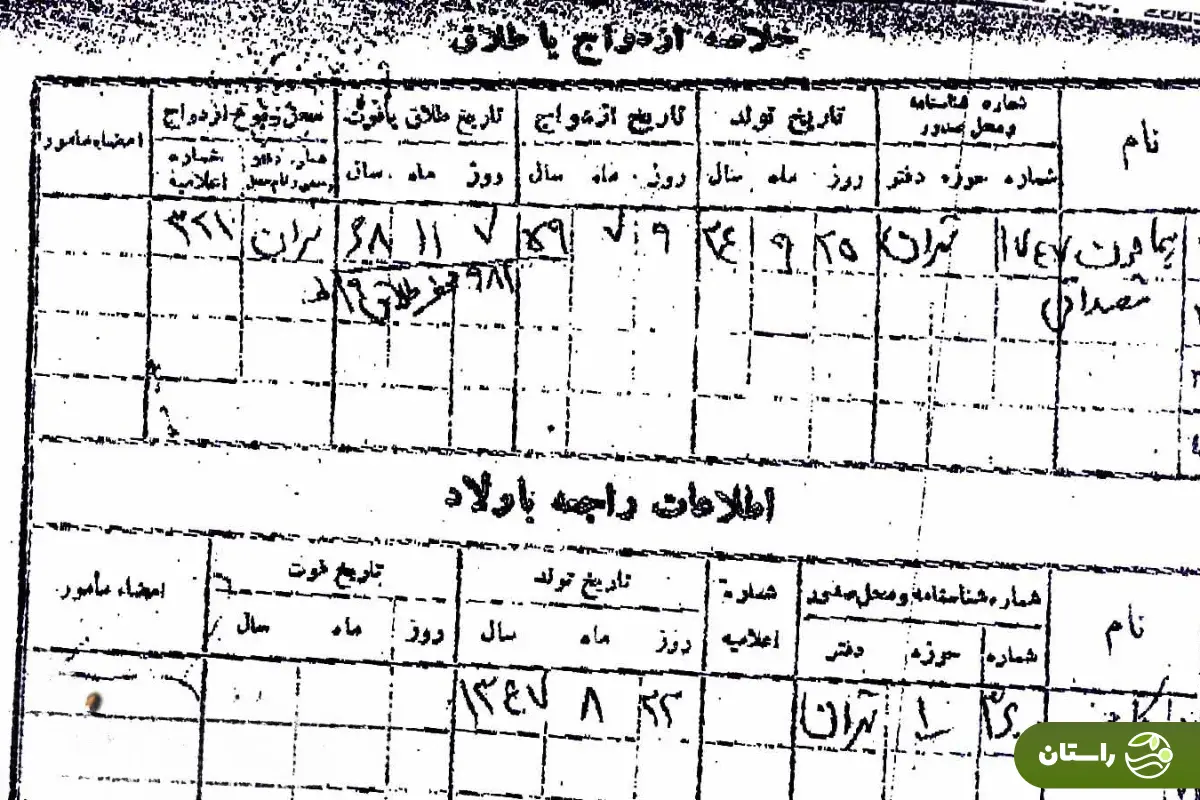 خلاصه ازدواج یا طلاق
نام
شماره شناسنامه و محل صدور
تاریخ تولد
تاریخ ازدواج
تاریخ طلاق یا فوت
محل وقوع ازدواج
امضاء مأمور
شماره حوزه دفتر
روز ماه سال
روز ماه سال
روز ماه سال
شماره اعلامیه
۱۷۴۷ تهران ۲۵ ۹ ۲۴ ۹ ۷ ۵۹ ۷ ۱۱ ۶۸ تهران ۳۲۱
طلاق
اطلاعات راجعه باولاد
نام
شماره شناسنامه و محل صدور
شماره اعلامیه
تاریخ تولد
تاریخ فوت
امضاء مأمور
شماره حوزه دفتر
روز ماه سال
روز ماه سال
۱ تهران ۲۲ ۸ ۱۳۴۷
راستان